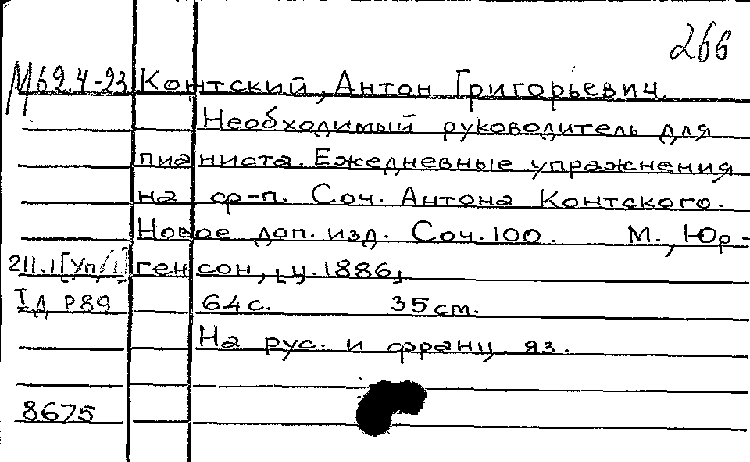 266
М69.4-23 Контский, Антон Григорьевич.
Необходимый руководитель для
пианиста. Ежедневные упражнения
на ф-п. Соч. Антона Контского.
Новое доп. изд. Соч. 100. М., Юр-
211.1[Уп/1] генсон, [ц. 1886]
I Д Р89 64 с. 35 см.
На рус. и франц яз.
8675